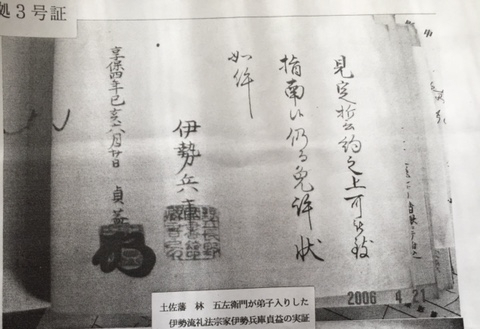 拠3号証
見定誓約之上可被致
指南候仍而免許状
如件
伊勢兵庫
享保四年己亥六月廿日 貞益
2006 4 21
土佐藩 林 五左衛門が弟子入りした
伊勢流礼法宗家伊勢兵庫貞益の実証